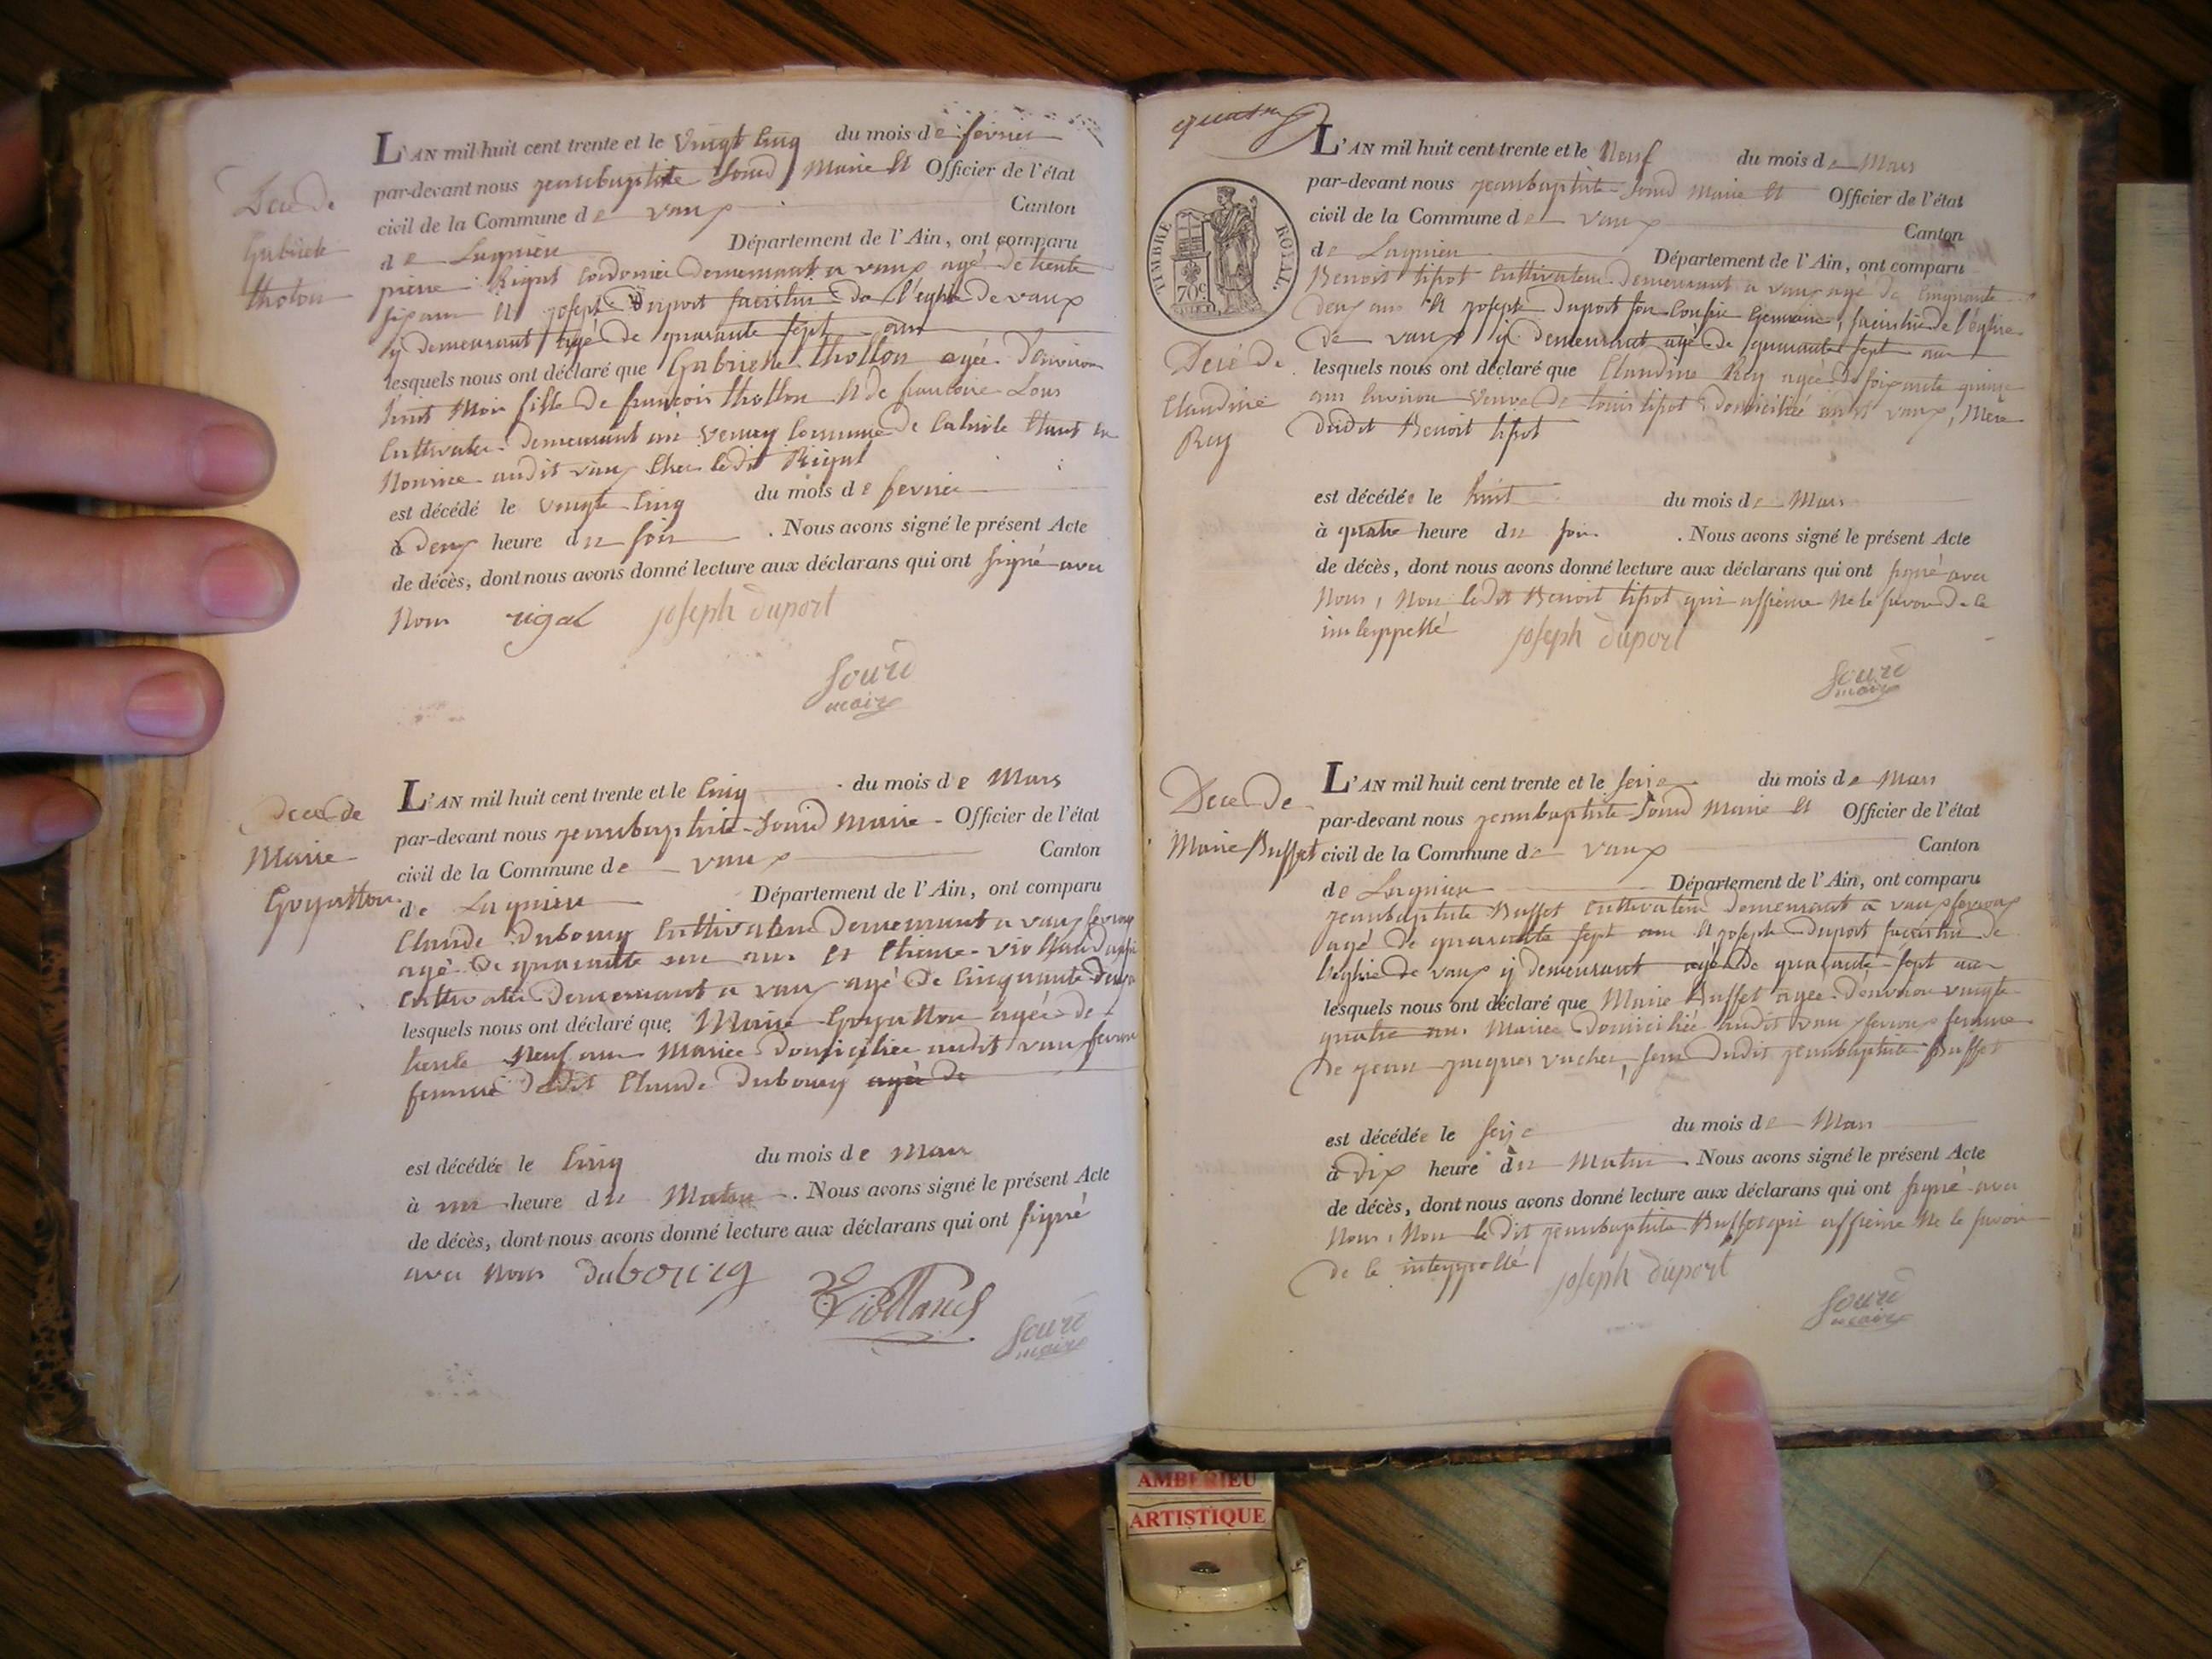 Decè de
Gabrielle
tholon
L'AN mil huit cent trente et le vingt cinq du mois de fevrier
par-devant nous jeanbaptiste Sourd Maire et Officier de l'état
civil de la Commune de vaux Canton
de Lagnieu Département de l'Ain, ont comparu
pierre Rigal cordonier demeurant a vaux agé de trente
six ans et joseph Duport de l'eglise de vaux
y demeurant agé de quarante sept ans
lesquels nous ont déclaré que Gabrielle thollon agée d'environ
huit Mois fille de françois thollon et de francoise
cultivateur demeurant commune de etant en
Nourice audit vaux chez ledit Rigal
est décédé le vingt cinq du mois de fevrier
à deux heure du soir . Nous avons signé le présent Acte
de décès, dont nous avons donné lecture aux déclarans qui ont signé avec
Nous rigal joseph duport
Sourd
maire
Decè de
Marie
Goyatton
L'AN mil huit cent trente et le cinq du mois de Mars
par-devant nous jeanbaptiste Sourd Maire Officier de l'état
civil de la Commune de vaux Canton
de Lagnieu Département de l'Ain, ont comparu
Claude Dubourg cultivateur demeurant a vaux fevroux
agé de quarante un ans et Etienne violland
cultivateur demeurant a vaux agé de cinquante deux
lesquels nous ont déclaré que Marie Goyatton agée de
trente Neuf ans Mariée domiciliée audit vaux fevroux
femme dudit Claude Dubourg agée de
est décédée le cinq du mois de Mars
à un heure du Matin . Nous avons signé le présent Acte
de décès, dont nous avons donné lecture aux déclarans qui ont signé
avec Nous dubourg
Violland
Sourd
maire
quatre
TIMBRE ROYAL.
70c
Decè de
Claudine
Rey
L'AN mil huit cent trente et le Neuf du mois de Mars
par-devant nous jeanbaptiste Sourd Maire et Officier de l'état
civil de la Commune de vaux Canton
de Lagnieu Département de l'Ain, ont comparu
Benoit tipot cultivateur demeurant a vaux agé de cinquante
deux ans et joseph duport son cousin Germain, de l'église
de vaux y demeurant agé de quarante sept ans
lesquels nous ont déclaré que Claudine Rey agée de soixante quinze
ans environ veuve de louis tipot domiciliée audit vaux, Mere
dudit Benoit tipot
est décédée le huit du mois de Mars
à quatre heure du soir . Nous avons signé le présent Acte
de décès, dont nous avons donné lecture aux déclarans qui ont signé avec
Nous, Non ledit Benoit tipot qui affirme Ne le savoir de ce
joseph duport
Sourd
maire
Decè de
Marie Buffet
L'AN mil huit cent trente et le seize du mois de Mars
par-devant nous jeanbaptiste Sourd Maire et Officier de l'état
civil de la Commune de vaux Canton
de Lagnieu Département de l'Ain, ont comparu
jeanbaptiste Buffet cultivateur demeurant a vaux fevroux
agé de quarante sept ans et joseph Duport de
l'eglise de vaux y demeurant agé de quarante sept ans
lesquels nous ont déclaré que Marie Buffet agée d'environ vingt
quatre ans Mariée domiciliée audit vaux fevroux femme
de jean jacques vacher, seur dudit jeanbaptiste Buffet
est décédée le seize du mois de Mars
à dix heure du Matin . Nous avons signé le présent Acte
de décès, dont nous avons donné lecture aux déclarans qui ont signé avec
Nous, Non le dit jeanbaptiste Buffet qui affirme Ne le savoir
de ce interpellé joseph duport
Sourd
maire
AMBERIEU
ARTISTIQUE